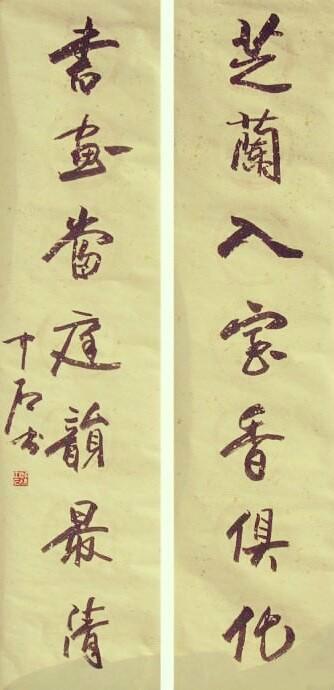 芝蘭入室香俱化
書畫當庭韻最清
石書